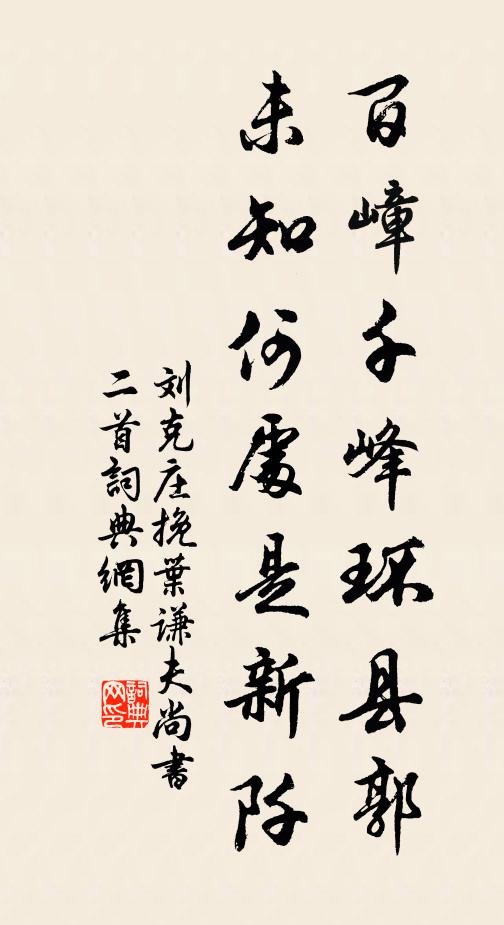 百嶂千峰环县郭
未知何處是新阡
刘克庄挽葉谦夫尚書
二首詞典網集
詞典
网印